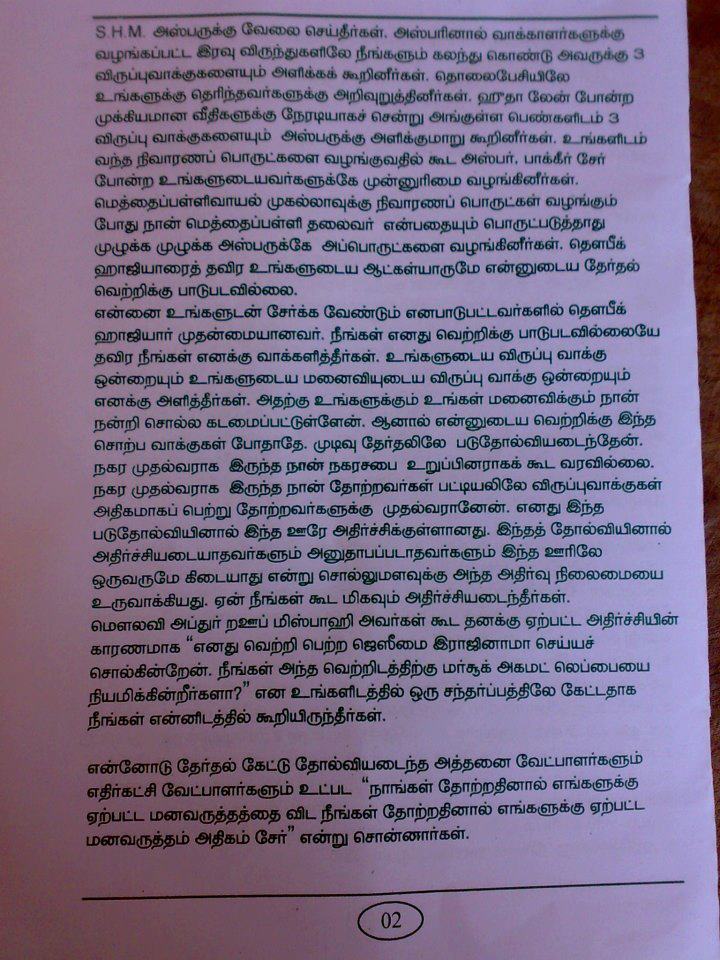 S.H.M. அஸ்பருக்கு வேலை செய்தீர்கள். அஸ்பரினால் வாக்காளர்களுக்கு
வழங்கப்பட்ட இரவு விருந்துகளிலே நீங்களும் கலந்து கொண்டு அவருக்கு 3
விருப்புவாக்குகளையும் அளிக்கக் கூறினீர்கள். தொலைபேசியிலே
உங்களுக்கு தெரிந்தவர்களுக்கு அறிவுறுத்தினீர்கள். ஹுதா லேன் போன்ற
முக்கியமான வீதிகளுக்கு நேரடியாகச் சென்று அங்குள்ள பெண்களிடம் 3
விருப்பு வாக்குகளையும் அஸ்பருக்கு அளிக்குமாறு கூறினீர்கள். உங்களிடம்
வந்த நிவாரணப் பொருட்களை வழங்குவதில் கூட அஸ்பர், பாக்கீர் சேர்
போன்ற உங்களுடையவர்களுக்கே முன்னுரிமை வழங்கினீர்கள்.
மெத்தைப்பள்ளிவாயல் முகல்லாவுக்கு நிவாரணப் பொருட்கள் வழங்கும்
போது நான் மெத்தைப்பள்ளி தலைவர் என்பதையும் பொருட்படுத்தாது
முழுக்க முழுக்க அஸ்பருக்கே அப்பொருட்களை வழங்கினீர்கள். தௌபீக்
ஹாஜியாரைத் தவிர உங்களுடைய ஆட்கள்யாருமே என்னுடைய தேர்தல்
வெற்றிக்கு பாடுபடவில்லை.
என்னை உங்களுடன் சேர்க்க வேண்டும் எனபாடுபட்டவர்களில் தௌபீக்
ஹாஜியார் முதன்மையானவர். நீங்கள் எனது வெற்றிக்கு பாடுபடவில்லையே
தவிர நீங்கள் எனக்கு வாக்களித்தீர்கள். உங்களுடைய விருப்பு வாக்கு
ஒன்றையும் உங்களுடைய மனைவியுடைய விருப்பு வாக்கு ஒன்றையும்
எனக்கு அளித்தீர்கள். அதற்கு உங்களுக்கும் உங்கள் மனைவிக்கும் நான்
நன்றி சொல்ல கடமைப்பட்டுள்ளேன். ஆனால் என்னுடைய வெற்றிக்கு இந்த
சொற்ப வாக்குகள் போதாதே. முடிவு தேர்தலிலே படுதோல்வியடைந்தேன்.
நகர முதல்வராக இருந்த நான் நகரசபை உறுப்பினராகக் கூட வரவில்லை.
நகர முதல்வராக இருந்த நான் தோற்றவர்கள் பட்டியலிலே விருப்புவாக்குகள்
அதிகமாகப் பெற்று தோற்றவர்களுக்கு முதல்வரானேன். எனது இந்த
படுதோல்வியினால் இந்த ஊரே அதிர்ச்சிக்குள்ளானது. இந்தத் தோல்வியினால்
அதிர்ச்சியடையாதவர்களும் அனுதாபப்படாதவர்களும் இந்த ஊரிலே
ஒருவருமே கிடையாது என்று சொல்லுமளவுக்கு அந்த அதிர்வு நிலைமையை
உருவாக்கியது. ஏன் நீங்கள் கூட மிகவும் அதிர்ச்சியடைந்தீர்கள்.
மௌலவி அப்துர் றஊப் மிஸ்பாஹி அவர்கள் கூட தனக்கு ஏற்பட்ட அதிர்ச்சியின்
காரணமாக “எனது வெற்றி பெற்ற ஜெஸீமை இராஜினாமா செய்யச்
சொல்கின்றேன். நீங்கள் அந்த வெற்றிடத்திற்கு மர்சூக் அகமட் லெப்பையை
நியமிக்கின்றீர்களா?” என உங்களிடத்தில் ஒரு சந்தர்ப்பத்திலே கேட்டதாக
நீங்கள் என்னிடத்தில் கூறியிருந்தீர்கள்.
என்னோடு தேர்தல் கேட்டு தோல்வியடைந்த அத்தனை வேட்பாளர்களும்
எதிர்கட்சி வேட்பாளர்களும் உட்பட “நாங்கள் தோற்றதினால் எங்களுக்கு
ஏற்பட்ட மனவருத்தத்தை விட நீங்கள் தோற்றதினால் எங்களுக்கு ஏற்பட்ட
மனவருத்தம் அதிகம் சேர்” என்று சொன்னார்கள்.
02